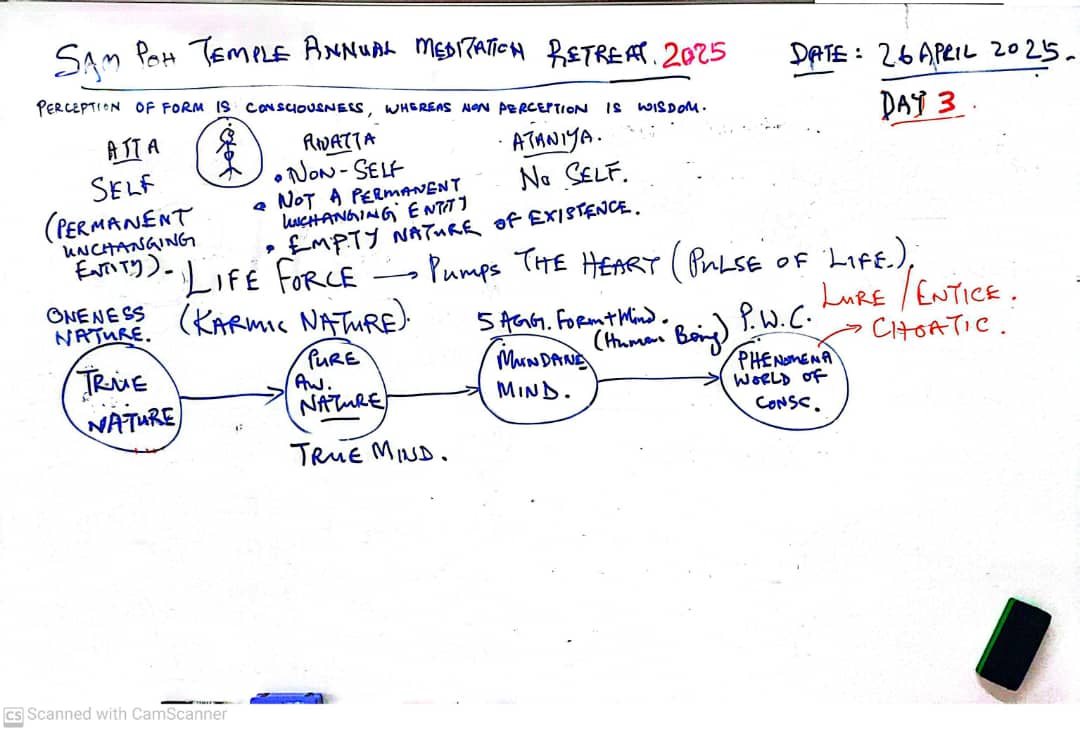 SAM POH TEMPLE ANNUAL MEDITATION RETREAT. 2025
DATE: 26 APRIL 2025.
DAY 3.
PERCEPTION OF FORM IS CONSCIOUSNESS, WHEREAS NON PERCEPTION IS WISDOM.
ATTA
SELF
(PERMANENT
UNCHANGING
ENTITY).
ANATTA
• NON-SELF
• NOT A PERMANENT
UNCHANGING ENTITY
• EMPTY NATURE OF EXISTENCE.
ATANIYA.
NO SELF.
LIFE FORCE → PUMPS THE HEART (PULSE OF LIFE.).
(KARMIC NATURE).
ONENESS
NATURE.
TRUE
NATURE
PURE
AW.
NATURE
TRUE MIND.
5 AGG. FORM + Mind.
(Human Being)
MUNDANE
MIND.
P.W.C.
PHENOMENA
WORLD OF
CONSC.
LURE / ENTICE.
→ CHOATIC.
CS Scanned with CamScanner